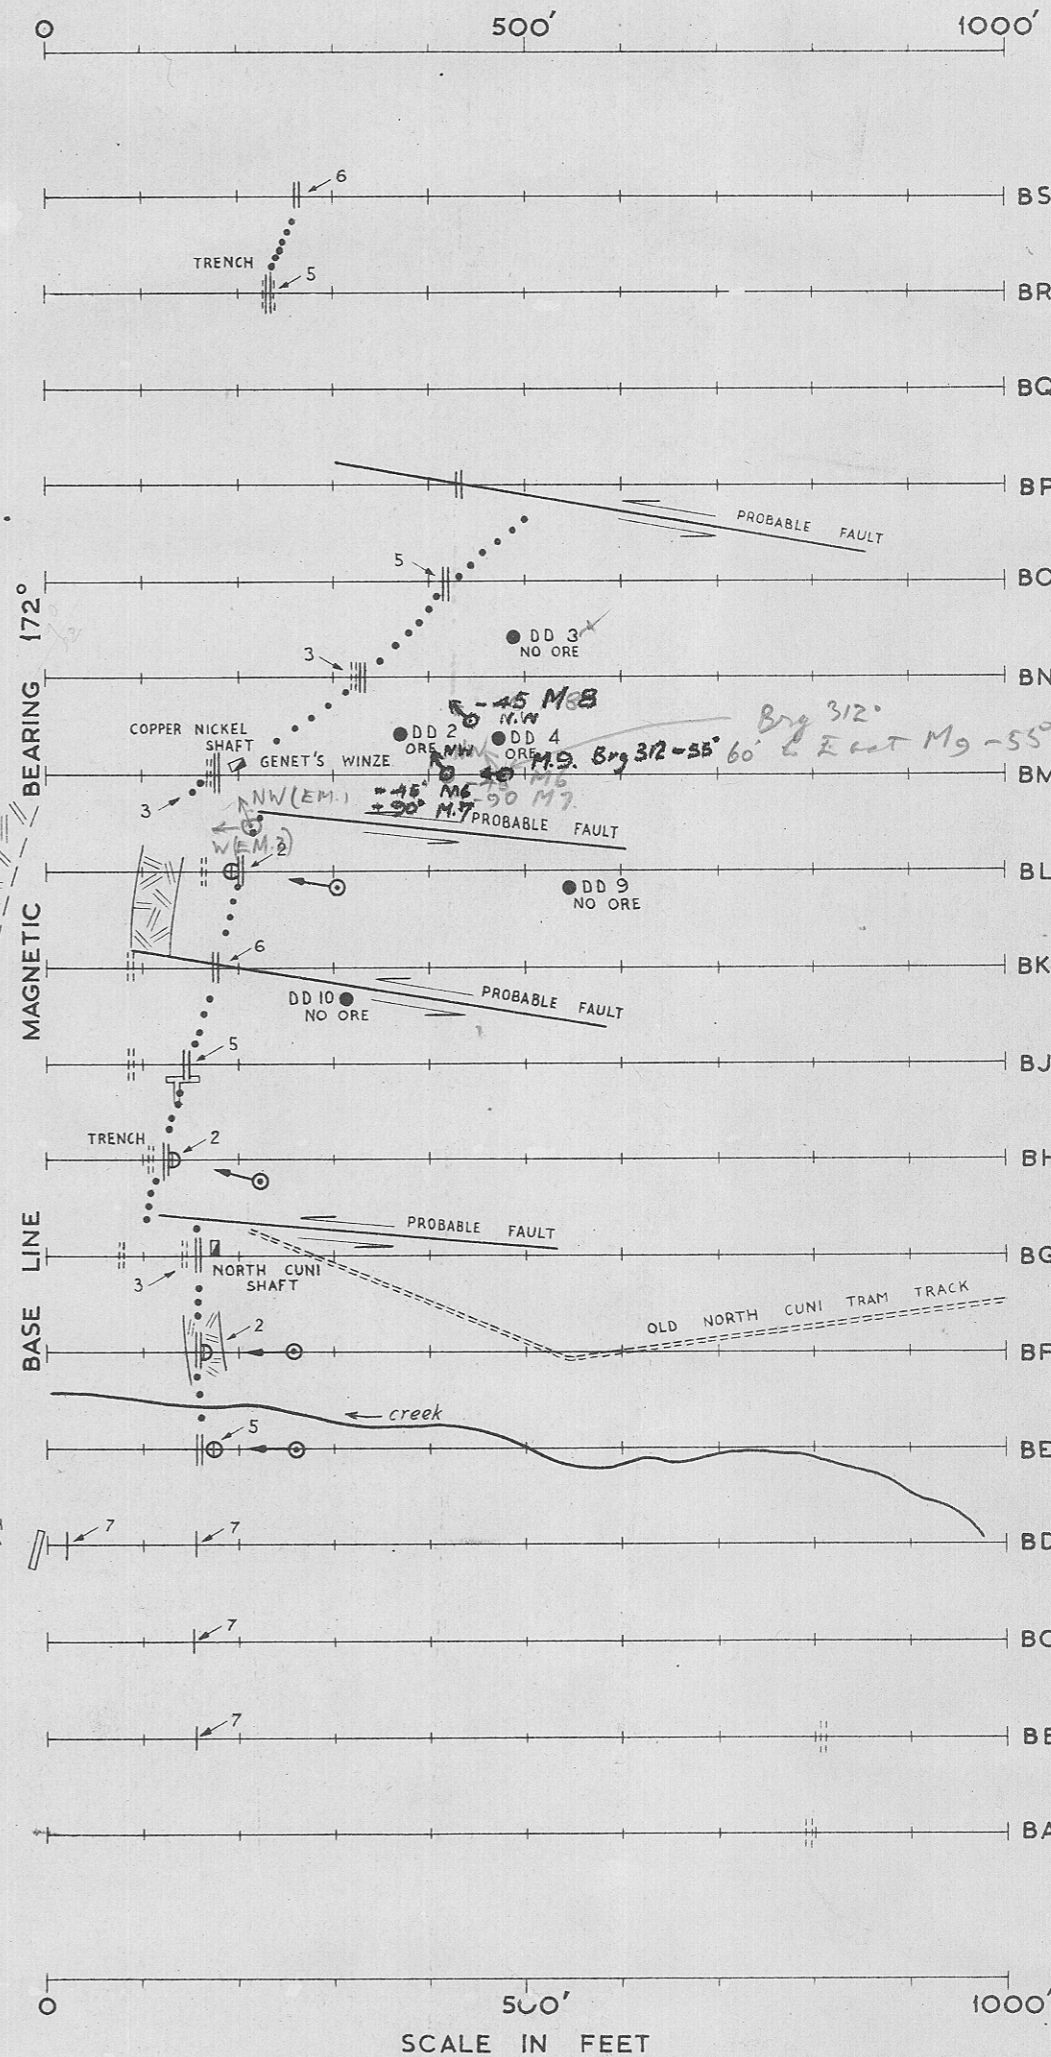 0 500' 1000'
6
BS
TRENCH
5
BR
BQ
BP
PROBABLE FAULT
5
BO
DD 3
NO ORE
3
BN
-45 M8
N.W
COPPER NICKEL
SHAFT
DD 2
ORE
NW
DD 4
ORE
Brg 312°
GENET'S WINZE
M.9. Brg 312-55°
60' to East M9 -55°
BM
3
NW (EM.1)
-45° M6
-90° M.7
M6
-90 M7
PROBABLE FAULT
W(EM.2)
2
BL
DD 9
NO ORE
6
BK
DD 10
NO ORE
PROBABLE FAULT
5
BJ
TRENCH
2
BH
PROBABLE FAULT
BG
3
NORTH CUNI
SHAFT
OLD NORTH CUNI TRAM TRACK
2
BF
creek
5
BE
7
7
BD
7
BC
7
BB
BA
BASE LINE MAGNETIC BEARING 172°
0 500' 1000'
SCALE IN FEET